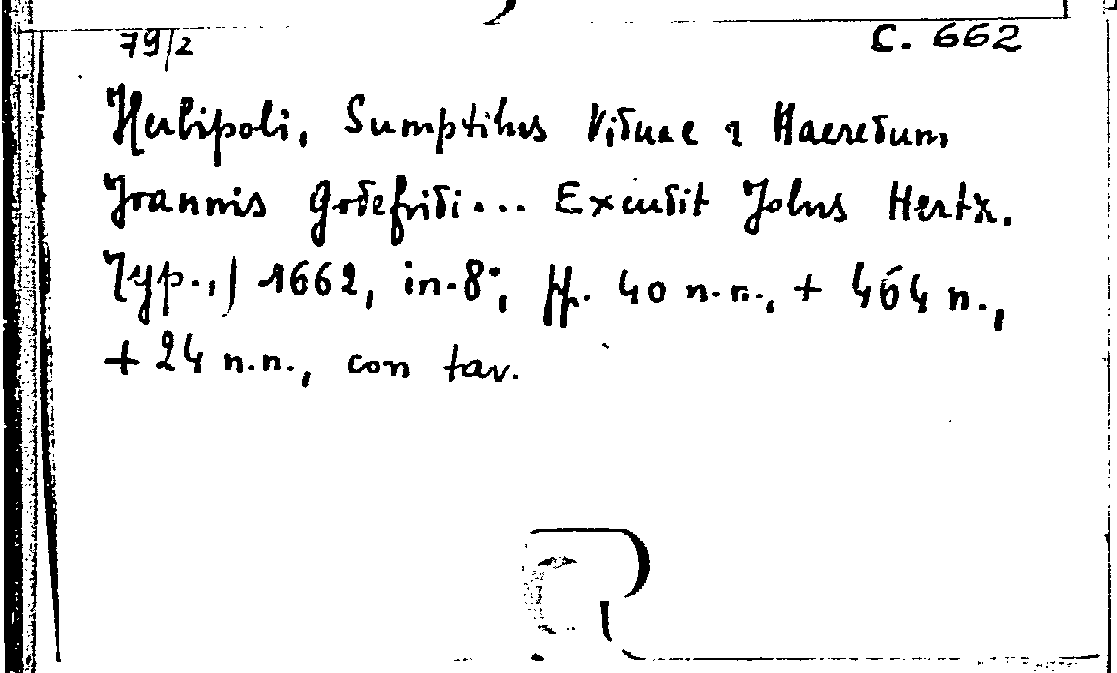 79/2 C. 662
Herbipoli, Sumptibus Viduae & Haeredum
Joannis Godefridi... Excudit Jobus Hertz.
Typ.,) 1662, in-8°, pp. 40 n.n., + 464 n.,
+ 24 n.n., con tav.